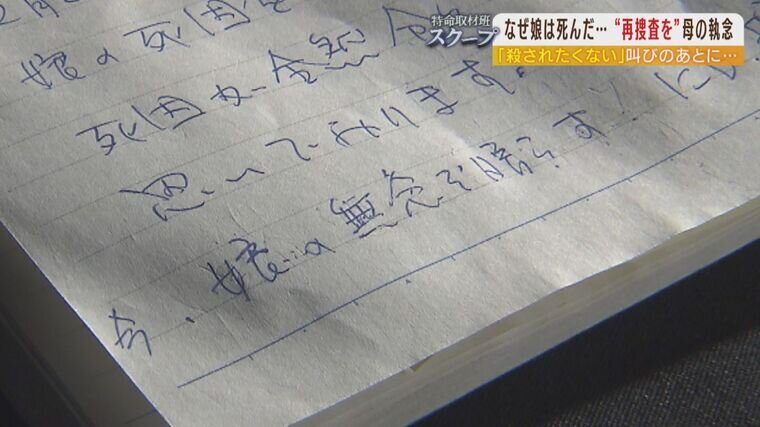 特命取材班
スクープ
なぜ娘は死んだ…“再捜査を”母の執念
「殺されたくない」叫びのあとに…
娘の死因を
死因が全然
思いでおります。
娘の無念を晴らす